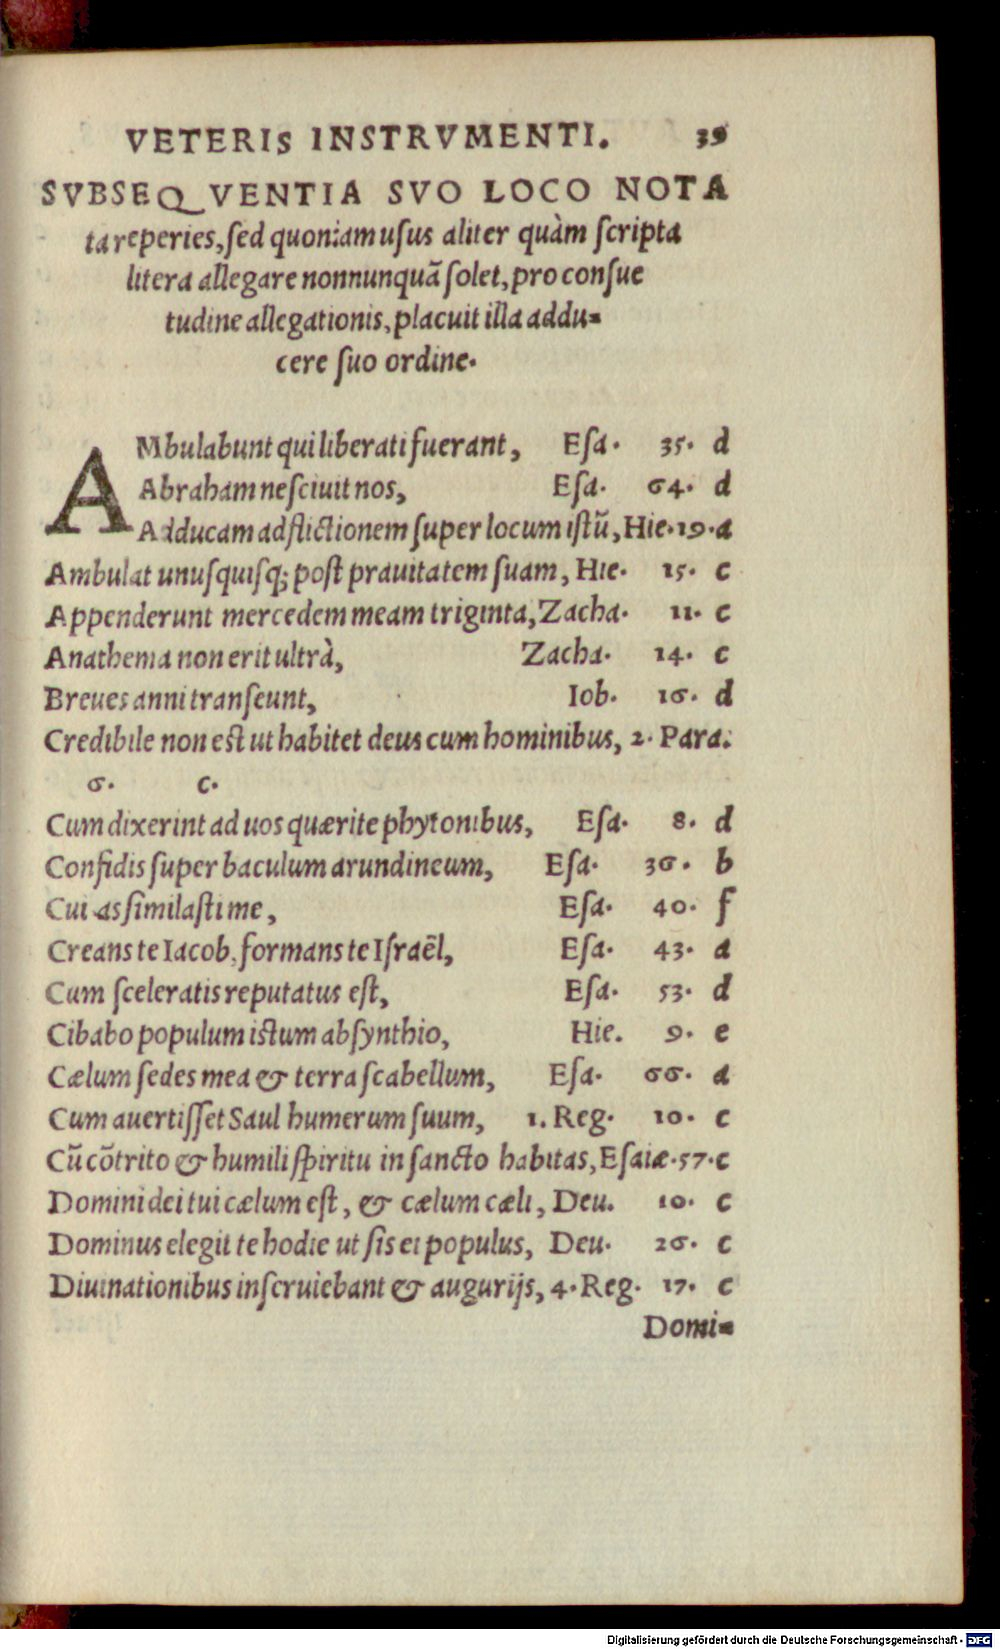 VETERIS INSTRVMENTI. 39
SVBSEQVENTIA SVO LOCO NOTA
ta reperies, sed quoniam usus aliter quàm scripta
litera allegare nonnunquã solet, pro consue
tudine allegationis, placuit illa addu=
cere suo ordine.
AMbulabunt qui liberati fuerant, Esa. 35. d
Abraham nesciuit nos, Esa. 64. d
Adducam adflictionem super locum istũ, Hie. 19. a
Ambulat unusquisq; post prauitatem suam, Hie. 15. c
Appenderunt mercedem meam triginta, Zacha. 11. c
Anathema non erit ultrà, Zacha. 14. c
Breues anni transeunt, Iob. 16. d
Credibile non est ut habitet deus cum hominibus, 2. Para.
6. c.
Cum dixerint ad uos quærite phytonibus, Esa. 8. d
Confidis super baculum arundineum, Esa. 36. b
Cui assimilasti me, Esa. 40. f
Creans te Iacob, formans te Israẽl, Esa. 43. a
Cum sceleratis reputatus est, Esa. 53. d
Cibabo populum istum absynthio, Hie. 9. e
Cælum sedes mea & terra scabellum, Esa. 66. a
Cum auertisset Saul humerum suum, 1. Reg. 10. c
Cũ cõtrito & humili spiritu in sancto habitas, Esaiæ. 57. c
Domini dei tui cælum est, & cælum cæli, Deu. 10. c
Dominus elegit te hodie ut sis ei populus, Deu. 26. c
Diuinationibus inseruiebant & augurijs, 4. Reg. 17. c
Domi=
Digitalisierung gefördert durch die Deutsche Forschungsgemeinschaft - DFG